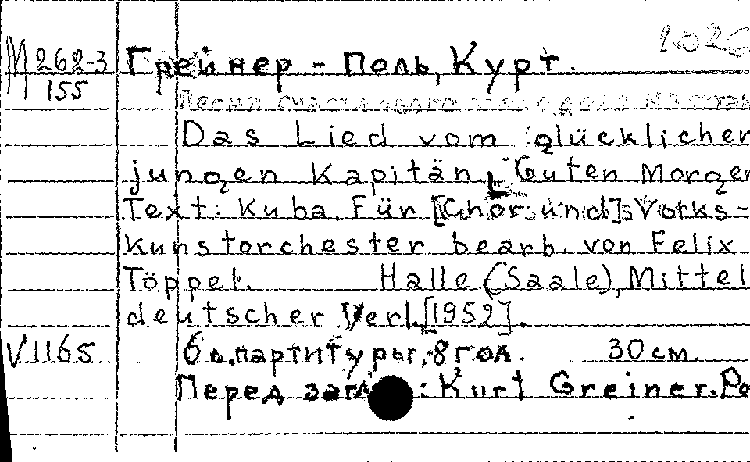 1026
М 262-3
155
Грейнер - Поль, Курт.
Песня счастливого
Das Lied vom glücklichen
jungen Kapitän. Guten Morgen
Text: Kuba. Für [Chor und] Volks-
kunstorchester bearb. von Felix
Töppel. Halle (Saale), Mittel
deutscher Verl. [1952].
V 1165 6 л. партитуры, 8 гол. 30 см
Перед загл.: Kurt Greiner-Po